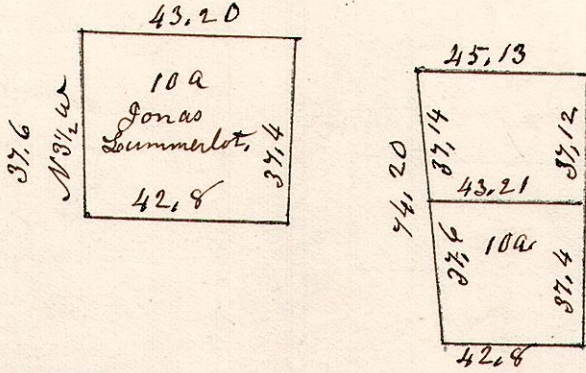 43,20
37,6
N 3½ W
10 a
Jonas
Lummerlot,
37,4
42,8
45,13
74,20
37,14
37,12
43,21
37,6
10 a
37,4
42,8